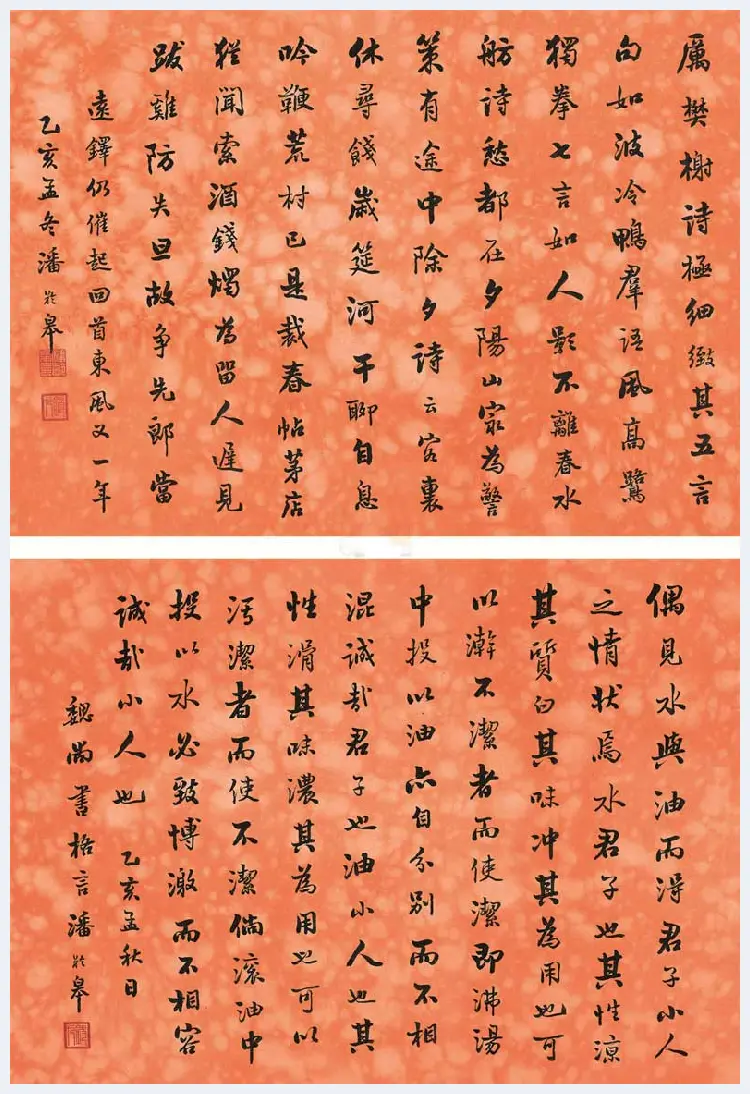 厲樊榭詩極細緻其五言
向如波冷鴨羣語風高鷺
獨拳七言如人影不離春水
舫詩愁都在夕陽山家為警
策有途中除夕詩云客裏
休尋餞歲筵河干聊自息
吟鞭荒村已是裁春帖茅店
猶聞索酒錢燭為留人遲見
跋雞防失旦故爭先郎當
遠鐸仍催起回首東風又一年
乙亥孟冬潘齡皋
偶見水與油而得君子小人
之情狀焉水君子也其性涼
其質白其味冲其為用也可
以澣不潔者而使潔即沸湯
中投以油亦自分別而不相
混誠哉君子也油小人也其
性滑其味濃其為用也可以
污潔者而使不潔倘滾油中
投以水必致博激而不相容
誠哉小人也 乙亥孟秋日
魏尚書格言潘齡皋